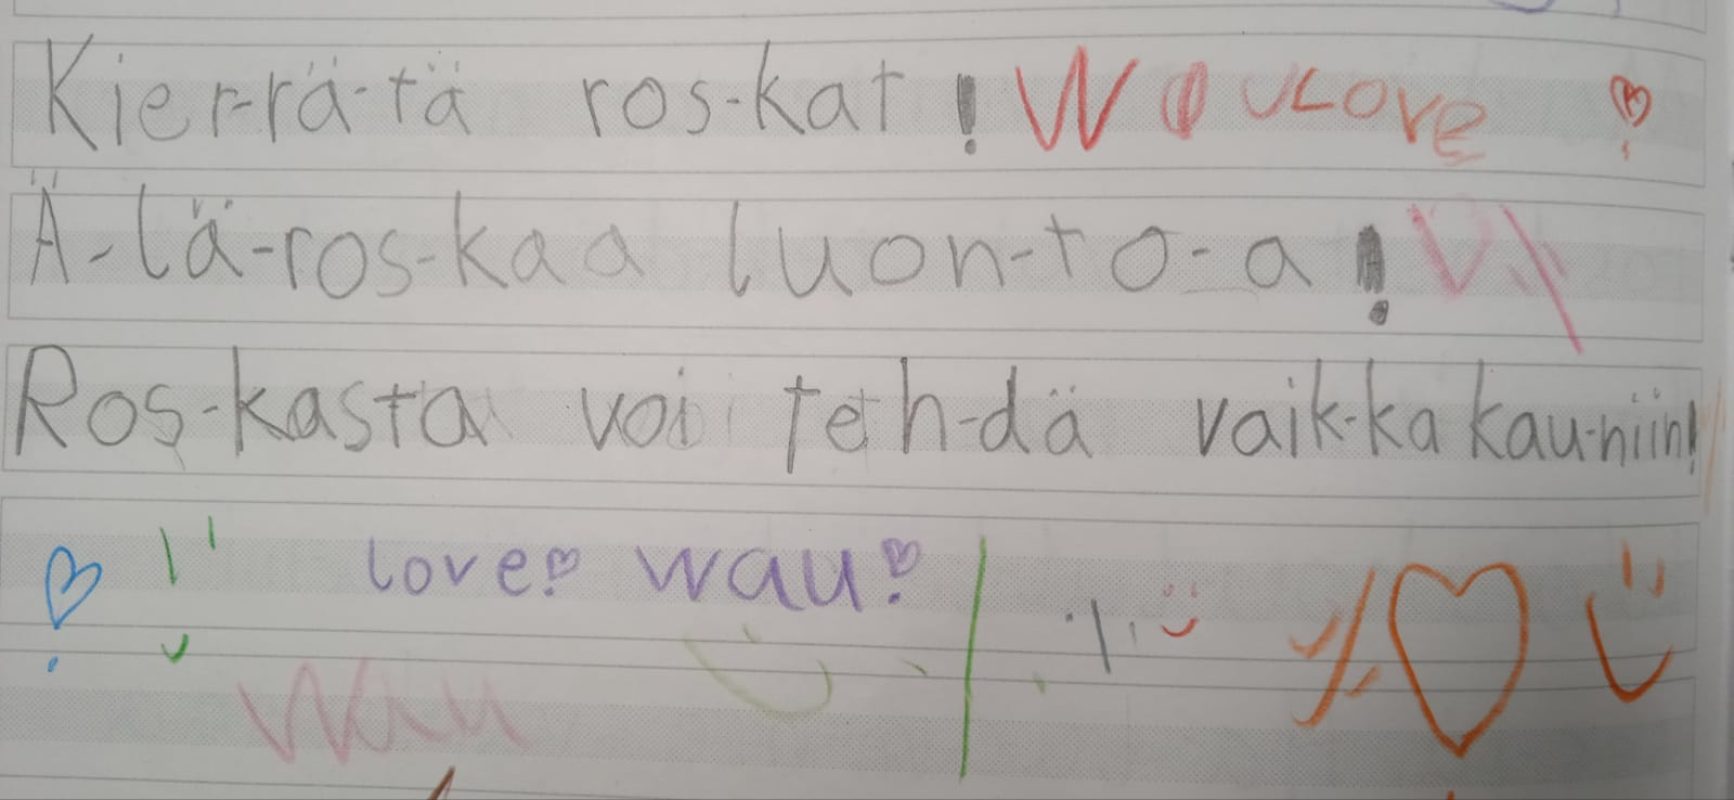 Kier-rä-tä ros-kat! WauLove
Ä-lä-ros-kaa luon-to-a!
Ros-kasta voi teh-dä vaik-ka kau-niin!
love! wau!
Wau